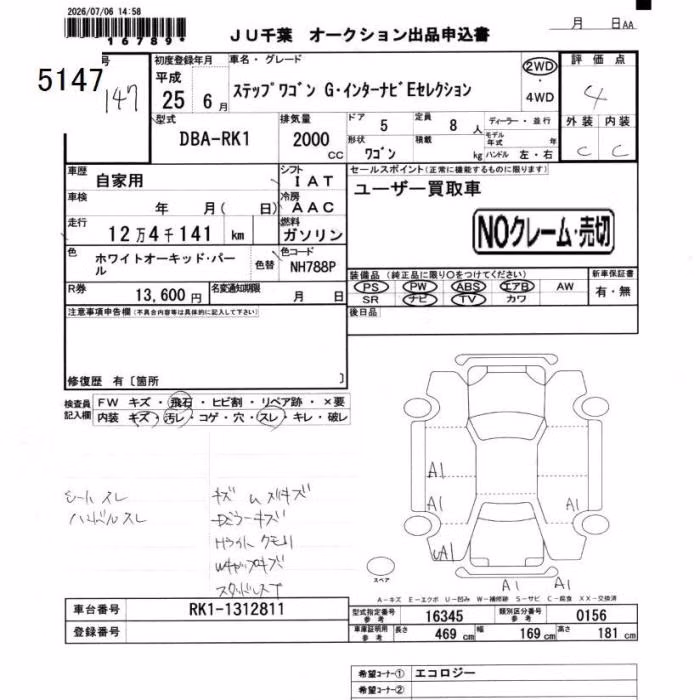 2026/07/06 14:58
16789*
JU千葉 オークション出品申込書
月 日 AA
5147
号
147
初度登録年月
平成
25 6月
車名・グレード
ステップワゴン G・インターナビEセレクション
2WD
・
4WD
評価点
4
型式
DBA-RK1
排気量
2000
cc
ドア 5
定員 8 人
形状
ワゴン
積載 kg
ディーラー・並行
モデル年式 年
ハンドル 左・右
外装 内装
C C
車歴
自家用
シフト
IAT
車検
年 月( 日)
冷房
AAC
走行
12万4千141 km
燃料
ガソリン
色
ホワイトオーキッド・パール
色替
色コード
NH788P
R券
13,600円
名変通知期限
月 日
セールスポイント(正常に機能するものに限ります)
ユーザー買取車
NOクレーム・売切
装備品(純正品に限り○をつけてください)
PS PW ABS エアB AW
SR ナビ TV カワ
新車保証書
有・無
後日品
注意事項申告欄(不具合内容等は具体的に記入して下さい)
修復歴 有〔箇所 〕
検査員記入欄
FW キズ・飛石・ヒビ割・リペア跡・×要
内装 キズ・汚レ・コゲ・穴・スレ・キレ・破レ
シート スレ
ハンドルスレ
キズ
ドラーキズ
Hライト クモリ
Wキャップキズ
スタッドレス
A1
A1
A1
A1
A1
A1
スペア
A-キズ E-エクボ U-凹み W-補修跡 S-サビ C-腐食 XX-交換済
車台番号
RK1-1312811
登録番号
型式指定番号
参考
16345
類別区分番号
参考
0156
車庫証明用
参考
長さ 469 cm
幅 169 cm
高さ 181 cm
希望コーナー① エコロジー
希望コーナー②